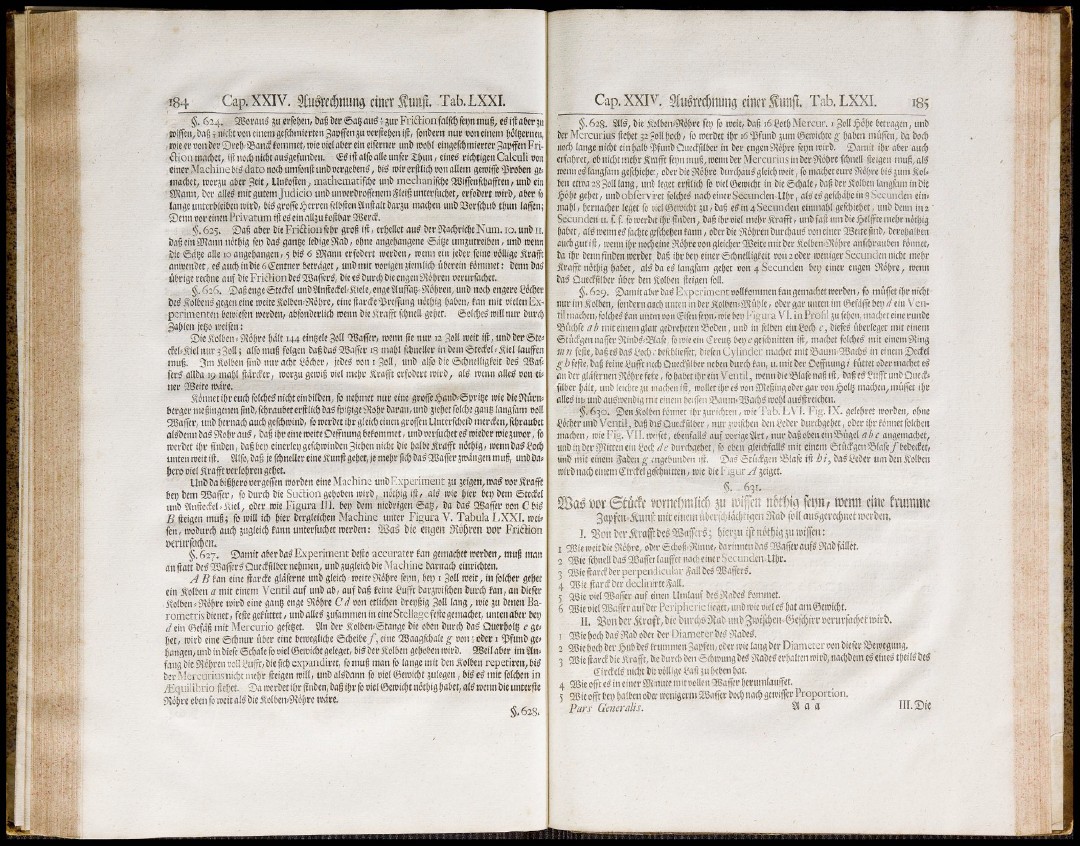 184 Cap. XXIV. Ausrechnung einer Kunst. Tab. LXXI.
§. 624. Woraus zu ersehen, daß der Satz aus: zur Friction falsch seyn muß, es ist aber zu
wissen, daß ⅓ nicht von einem geschmierten Zapffen zu verstehen ist, sondern nur von einem höltzernen,
wie er von der Dreh-Banck kommet, wie viel aber ein eiserner und wohl eingeschmierter Zapffen Fri-
ction machet, ist noch nicht ausgefunden. Es ist also alle unser Thun, eines richtigen Calculi von
einer Machine bis dato noch umsonst und vergebens, bis wir erstlich von allem gewisse Proben ge-
machet, worzu aber Zeit, Unkosten, mathematische und mechanische Wissenschafften, und ein
Mann, der alles mit gutem Judicio und unverdrossenem Fleiß untersuchet, erfodert wird, aber so
lange unterbleiben wird, bis grosse Herren selbsten Anstalt darzu machen und Vorschub thun lassen;
Denn vor einen Privatum ist es ein allzu kostbar Werck.
§. 625. Daß aber die Friction sehr groß ist, erhellet aus der Nachricht Num. 10. und 11.
daß ein Mann nöthig sey das gantze ledige Rad, ohne angehangene Sätze umzutreiben, und wenn
die Sätze alle 10 angehangen, 5 bis 6 Mann erfodert werden, wenn ein jeder seine völlige Krafft
anwendet, es auch in die 6 Centner beträget, und mit vorigen ziemlich überein kömmet: denn das
übrige rechne auf die Friction des Wassers, die es durch die engen Röhren verursachet.
§. 626. Daß enge Steckel und Ansteckel-Kiele, enge Auffatz-Röhren, und noch engere Löcher
des Kolbens gegen eine weite Kolben-Röhre, eine starcke Pressung nöthig haben, kan mit vielen Ex-
perimenten bewiesen werden, absonderlich wenn die Krafft schnell gehet. Solches will nur durch
Zahlen jetzo weisen:
Die Kolben-Röhre hält 144 eintzele Zoll Wasser, wenn sie nur 12 Zoll weit ist, und der Ste-
ckel-Kiel nur 3 Zoll; also muß folgen daß das Wasser 13 mahl schneller in dem Steckel-Kiel lauffen
muß. Im Kolben sind nur acht Löcher, jedes von 1 Zoll, und also die Schnelligkeit des Was-
sers allda 19 mahl stärcker, worzu gewiß viel mehr Krafft erfodert wird, als wenn alles von ei-
ner Weite wäre.
Könnet ihr euch solches nicht einbilden, so nehmet nur eine grosse Hand-Spritze wie die Nürn-
berger meßingenen sind, schraubet erstlich das spitzige Rohr daran, und ziehet solche gantz langsam voll
Wasser, und hernach auch geschwind, so werdet ihr gleich einen grossen Unterscheid mercken, schraubet
alsdenn das Rohr aus, daß ihr eine weite Oeffnung bekommet, und versuchet es wieder wie zuvor, so
werdet ihr finden, daß bey einerley geschwinden Ziehen nicht die halbe Krafft nöthig, wenn das Loch
unten weit ist. Also, daß je schneller eine Kunst gehet, je mehr sich das Wasser zwängen muß, und da-
hero viel Krafft verlohren gehet.
Und da bißhero vergessen worden eine Machine und Experiment zu zeigen, was vor Krafft
bey dem Wasser, so durch die Suction gehoben wird, nöthig ist, als wie hier bey dem Steckel
und Ansteckel-Kiel, oder wie Figura III. bey dem niedrigen Satz, da das Wasser von C bis
B steigen muß; so will ich hier dergleichen Machine unter Figura V. Tabula LXXI. wei-
sen, wodurch auch zugleich kann untersuchet werden: Was die engen Röhren vor Friction
verursachen.
§. 627. Damit aber das Experiment desto accurater kan gemachet werden, muß man
an statt des Wassers Quecksilber nehmen, und zugleich die Machine darnach einrichten.
A B kan eine starcke gläserne und gleich weite Röhre seyn, bey 1 Zoll weit, in solcher gehet
ein Kolben a mit einem Ventil auf und ab, auf daß keine Lufft darzwischen durch kan, an dieser
Kolben-Röhre wird eine gantz enge Röhre C d von etlichen dreyßig Zoll lang, wie zu denen Ba-
rometris dienet, feste gekittet, und alles zusammen in eine Stellage feste gemachet, unten aber bey
d ein Gefäß mit Mercurio gesetzet. An der Kolben-Stange die oben durch das Querholtz e ge-
het, wird eine Schnur über eine bewegliche Scheibe f, eine Waagschale g von ½ oder 1 Pfund ge-
hangen, und in diese Schale so viel Gewicht geleget, bis der Kolben gehoben wird. Weil aber im An-
fang die Röhren voll Lufft, die sich expandiret, so muß man so lange mit den Kolben repetiren, bis
der Mercurius nicht mehr steigen will, und alsdann so viel Gewicht zulegen, bis es mit solchen in
Æquilibrio stehet. Da werdet ihr finden, daß ihr so viel Gewicht nöthig habet, als wenn die unterste
Röhre eben so weit als die Kolben-Röhre wäre.
§. 628.
Cap. XXIV. Ausrechnung einer Kunst. Tab. LXXI. 185
§. 628. Als, die Kolben-Röhre sey so weit, daß 16 Loth Mercur. 1 Zoll Höhe betragen, und
der Mercurius stehet 32 Zoll hoch, so werdet ihr 16 Pfund zum Gewichte g haben müssen, da doch
noch lange nicht ein halb Pfund Quecksilber in der engen Röhre seyn wird. Damit ihr aber auch
erfahret, ob nicht mehr Krafft seyn muß, wenn der Mercurius in der Röhre schnell steigen muß, als
wenn es langsam geschiehet, oder die Röhre durchaus gleich weit, so machet eure Röhre bis zum Kol-
ben etwa 28 Zoll lang, und leget erstlich so viel Gewicht in die Schale, daß der Kolben langsam in die
Höhe gehet, und observiret solches nach einer Secunden-Uhr, als es geschähe in 8 Secunden ein-
mahl, hernacher leget so viel Gewicht zu, daß es in 4 Secunden einmahl geschiehet, und denn in 2
Secunden u. s. f. so werdet ihr finden, daß ihr viel mehr Krafft, und fast um die Helffte mehr nöthig
habet, als wenn es sachte geschehen kann, oder die Röhren durchaus von einer Weite sind, derohalben
auch gut ist, wenn ihr noch eine Röhre von gleicher Weite mit der Kolben-Röhre anschrauben könnet,
da ihr denn finden werdet daß ihr bey einer Schnelligkeit von 2 oder weniger Secunden nicht mehr
Krafft nöthig habet, als da es langsam gehet von 4 Secunden bey einer engen Röhre, wenn
das Quecksilber über den Kolben steigen soll.
§. 629. Damit aber das Experiment vollkommen kan gemachet werden, so müsset ihr nicht
nur im Kolben, sondern auch unten in der Kolben-Mühle, oder gar unten im Gefässe bey d ein Ven-
til machen, solches kan unten von Eisen seyn, wie bey Figura VI. in Profil zu sehen, machet eine runde
Büchse a b mit einem glatt gedreheten Boden, und in selben ein Loch c, dieses überleget mit einem
Stückgen nasser Rinds-Blase, so wie ein Creutz bey e geschnitten ist, machet solches mit einem Ring
m n feste, daß es das Loch c beschliesset, diesen Cylinder machet mit Baum-Wachs in einem Deckel
g h feste, daß keine Lufft noch Quecksilber neben durch kan, u. mit der Oeffnung i küttet oder machet es
an der gläsernen Röhre feste, so habet ihr ein Ventil, wenn die Blase naß ist, daß es Lufft und Queck-
silber hält, und leichte zu machen ist, wollet ihr es von Meßing oder gar von Holtz machen, müsset ihr
alles in- und auswendig mit einem heissen Baum-Wachs wohl ausstreichen.
§. 630. Den Kolben könnet ihr zurichten, wie Tab. LVI. Fig. IX. gelehret worden, ohne
Löcher und Ventil, daß das Quecksilber, nur zwischen den Leder durchgehet, oder ihr könnet solchen
machen, wie Fig. VII. weiset, ebenfalls auf vorige Art, nur daß oben ein Bügel a b c angemachet,
und in der Mitten ein Loch d e durchgehet, so oben gleichfalls mit einem Stückgen Blase f bedecket,
und mit einem Faden g angebunden ist. Das Stückgen Blase ist h i, das Leder um den Kolben
wird nach einem Circkel geschnitten, wie die Figur A zeiget.
§. 631.
Was vor Stücke vornehmlich zu wissen nöthig seyn, wenn eine krumme
Zapfen-Kunst mit einem überschlächtigen Rad soll ausgerechnet werden.
I. Von der Krafft des Wassers; hierzu ist nöthig zu wissen:
1 Wie weit die Röhre, oder Schoß-Rinne, darinnen das Wasser aufs Rad fället.
2 Wie schnell das Wasser lauffet nach einer Secunden-Uhr.
3 Wie starck der perpendicular Fall des Wassers.
4 Wie starck der declinirte Fall.
5 Wie viel Wasser auf einen Umlauf des Rades kommet.
6 Wie viel Wasser auf der Peripherie lieget, und wie viel es hat am Gewicht.
II. Von der Krafft, die durchs Rad und Zwischen-Geschirr verursachet wird.
1 Wie hoch das Rad oder der Diameter des Rades.
2 Wie hoch der Hub des krummen Zapfen, oder wie lang der Diameter von dieser Bewegung.
3 Wie starck die Krafft, die durch den Schwung des Rades erhalten wird, nachdem es eines theils des
Circkels nicht die völlige Last zu heben hat.
4 Wie offt es in einer Minute mit vollen Wasser herumlauffet.
5 Wie offt bey halben oder wenigerm Wasser doch nach gewisser Proportion.
Pars Generalis. A a a III. Die